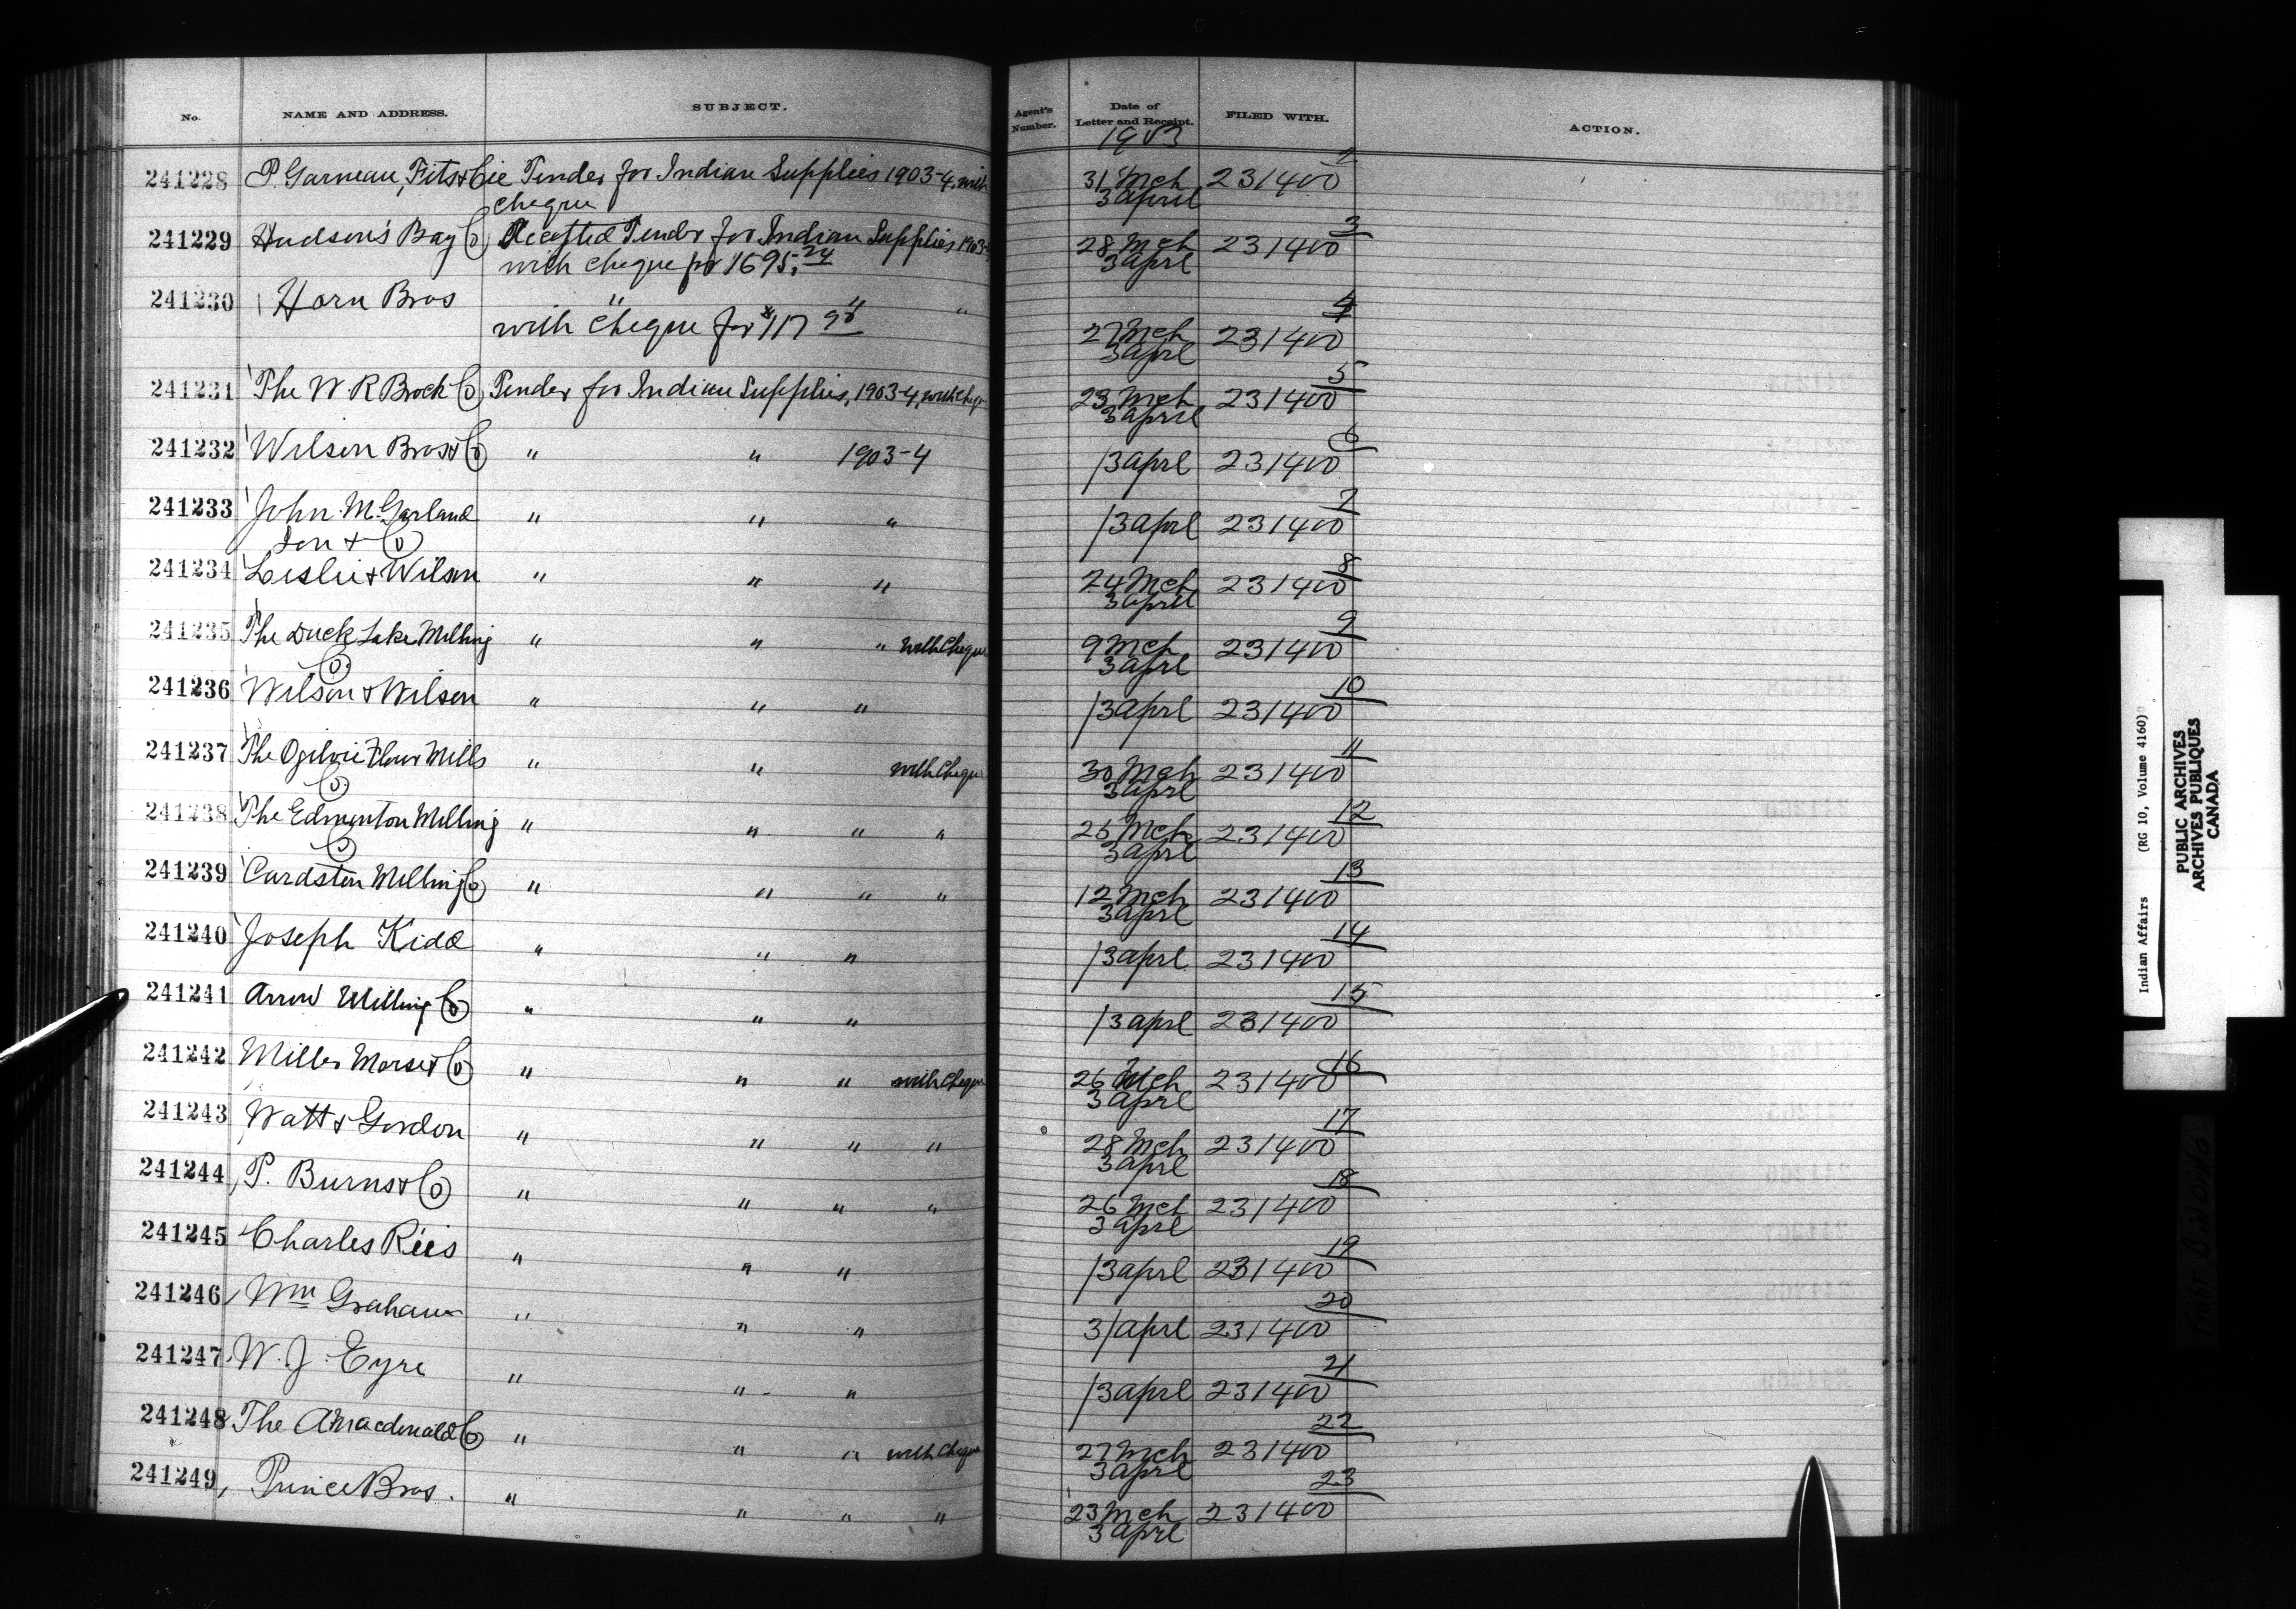 No. NAME AND ADDRESS. SUBJECT. Agent's Number. Date of Letter and Receipt. FILED WITH. ACTION.
1903
241228 P. Garneau, Fils & Cie Tender for Indian Supplies 1903-4, with 31 Mch 231400 2
cheque 3 April
241229 Hudson's Bay Co Accepted Tender for Indian Supplies 1903-4 28 Mch 231400 3
with cheque for 1695.24 3 Aprl
241230 Horn Bros " " "
with cheque for $117 90 27 Mch 231400 4
3 Aprl
241231 The W R Brock Co Tender for Indian Supplies, 1903-4, with cheque 23 Mch 231400 5
3 April
241232 Wilson Bros & Co " " 1903-4 /3 Aprl 231400 6
241233 John M. Garland " " " /3 Aprl 231400 7
Son & Co
241234 Leslie & Wilson " " " 24 Mch 231400 8
3 April
241235 The Duck Lake Milling " " " with Cheque 9 Mch 231400 9
Co 3 Aprl
241236 Wilson & Wilson " " " /3 Aprl 231400 10
241237 The Ogilvie Flour Mills " " with Cheque 30 Mch 231400 11
Co 3 Aprl
241238 The Edmonton Milling " " " " 25 Mch 231400 12
Co 3 Aprl
241239 Cardston Milling Co " " " " 12 Mch 231400 13
3 Aprl
241240 Joseph Kidd " " " /3 Aprl 231400 14
241241 Arrow Milling Co " " " /3 Aprl 231400 15
241242 Miller Morse & Co " " " with Cheque 26 Mch 231400 16
3 Aprl
241243 Watt & Gordon " " " " 28 Mch 231400 17
3 Aprl
241244 P. Burns & Co " " " " 26 Mch 231400 18
3 Aprl
241245 Charles Reis " " " /3 Aprl 231400 19
241246 Wm Graham " " " 3/Aprl 231400 20
241247 W. J. Eyre " " " /3 Aprl 231400 21
241248 The A Macdonald Co " " " with Cheque 27 Mch 231400 22
3 Aprl
241249 Prince Bros. " " " " 23 Mch 231400 23
3 Aprl
Indian Affairs (RG 10, Volume 4160)
PUBLIC ARCHIVES
ARCHIVES PUBLIQUES
CANADA
TIGHT BINDING